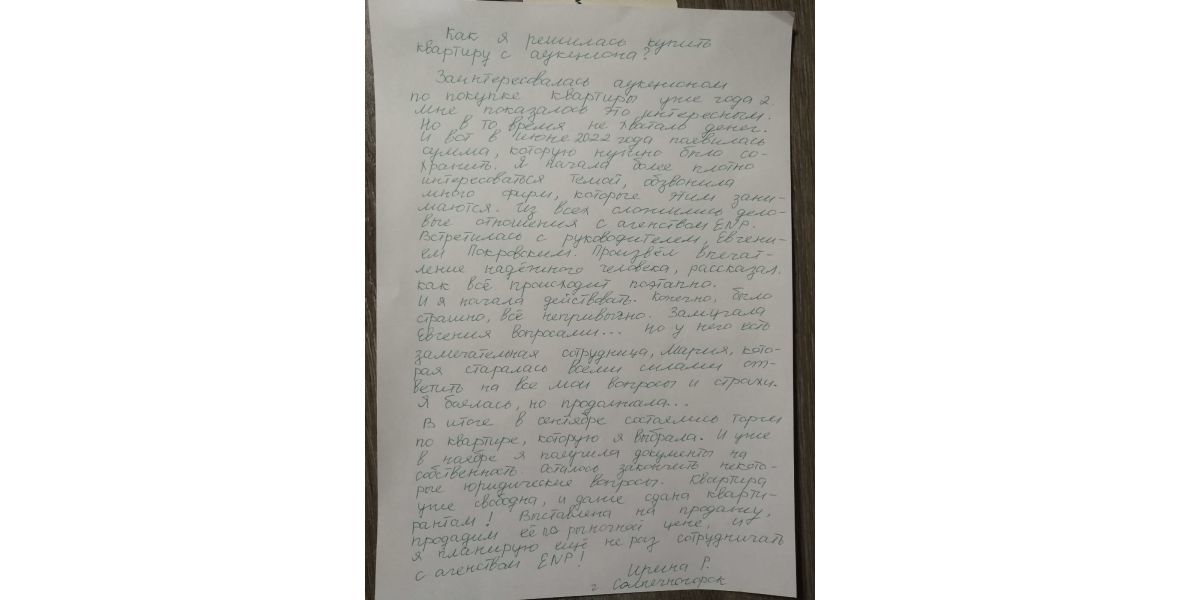 Как я решилась купить
квартиру с аукциона?
Заинтересовалась аукционом
по покупке квартиры уже года 2.
Мне показалось это интересным.
Но в то время не хватало денег.
И вот в июне 2022 года появилась
сумма, которую нужно было со-
хранить. Я начала более плотно
интересоваться темой, обзвонила
много фирм, которые этим зани-
маются. Из всех сложились дело-
вые отношения с агенством ENP.
Встретилась с руководителем, Евгени-
ем Покровским. Произвёл впечат-
ление надёжного человека, рассказал
как всё происходит поэтапно.
И я начала действовать. Конечно, было
страшно, всё непривычно. Замучала
Евгения вопросами... Но у него есть
замечательная сотрудница, Мария, кото-
рая старалась всеми силами от-
ветить на все мои вопросы и страхи.
Я боялась, но продолжала...
В итоге в сентябре состоялись торги
по квартире, которую я выбрала. И уже
в ноябре я получила документы на
собственность. Осталось закончить некото-
рые юридические вопросы. Квартира
уже свободна, и даже сдана кварти-
рантам! Выставлена на продажу,
продадим её по рыночной цене, и
я планирую ещё не раз сотрудничать
с агенством ENP!
Ирина Р.
г. Солнечногорск